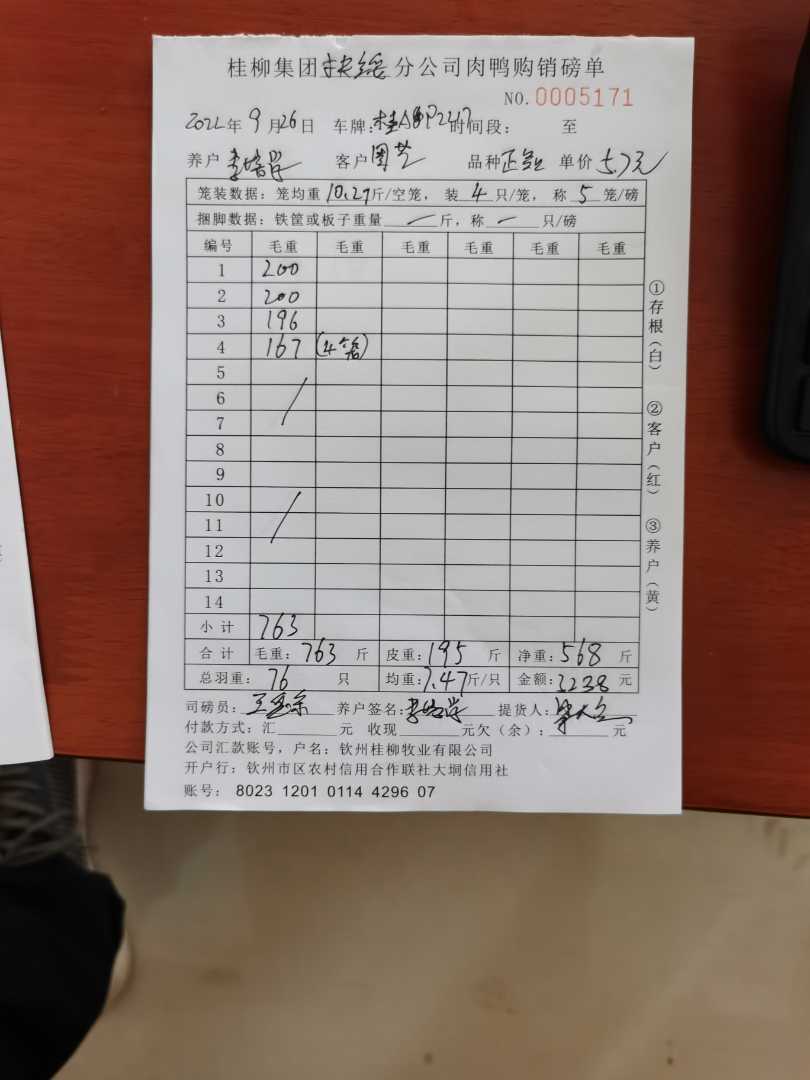 桂柳集团扶绥分公司肉鸭购销磅单
NO.0005171
2022年9月26日 车牌:桂 时间段: 至
养户 李培 客户 周艺 品种 正 单价 5.7元
笼装数据:笼均重10.27斤/空笼,装4只/笼,称5笼/磅
捆脚数据:铁筐或板子重量—斤,称—只/磅
编号 毛重 毛重 毛重 毛重 毛重 毛重
1 200
2 200
3 196
4 167 (4个笼)
5
6
7
8
9
10
11
12
13
14
小计 763
合计 毛重:763斤 皮重:195斤 净重:568斤
总羽重:76只 均重:7.47斤/只 金额:3238元
司磅员: 养户签名:李培 提货人:
付款方式:汇 元 收现 元欠(余): 元
公司汇款账号,户名:钦州桂柳牧业有限公司
开户行:钦州市区农村信用合作联社大垌信用社
账号: 8023 1201 0114 4296 07
①存根(白)
②客户(红)
③养户(黄)